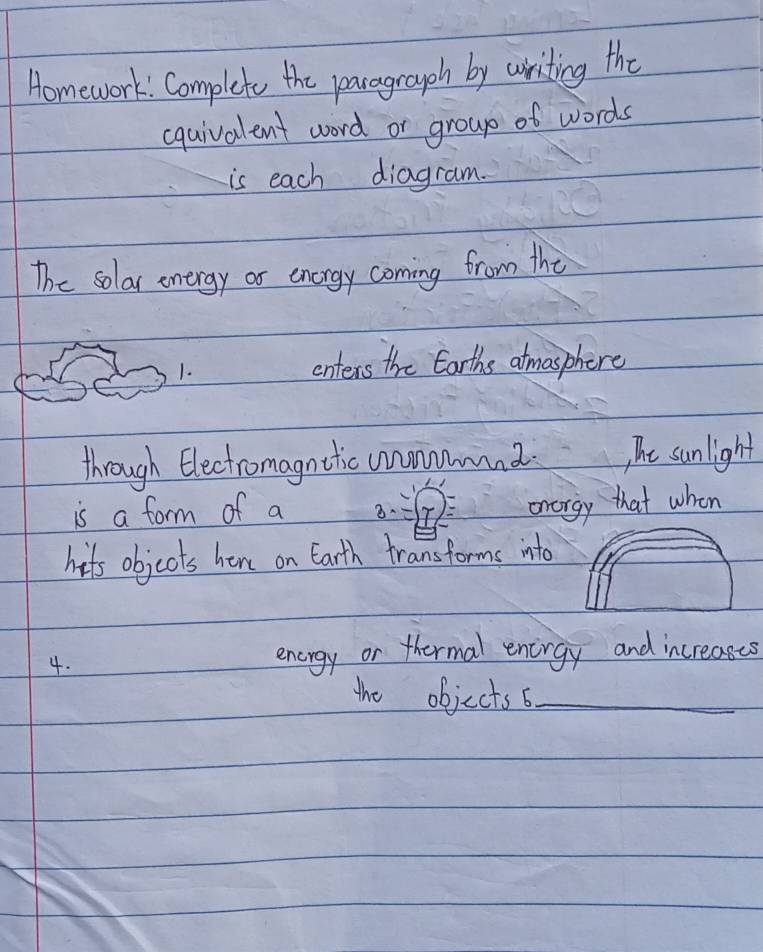 Homework: Complete the paragraph by writing the
equivalent word or group of words
is each diagram.
The solar energy or energy coming from the
1. enters the Earths atmasphere
through Electromagnetic 2. , The sunlight
is a form of a 3. energy that when
hits objects here on Earth transforms into
4. energy or thermal energy and increases
the objects 5.